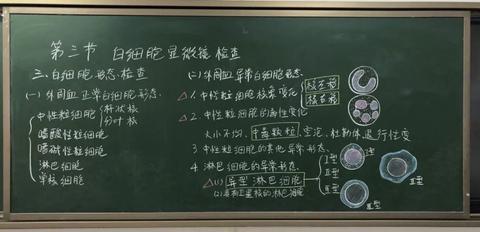 第三节 白细胞显微镜检查
三、白细胞形态检查
(一)外周血正常白细胞形态
中性粒细胞 { 杆状核
分叶核
嗜酸性粒细胞
嗜碱性粒细胞
淋巴细胞
单核细胞
(二)外周血异常白细胞形态
△1.中性粒细胞核象变化 { 核左移
核右移
△2.中性粒细胞的毒性变化
大小不均、中毒颗粒、空泡、杜勒体、退行性变
3.中性粒细胞的其他异常形态
4.淋巴细胞的异常形态
△(1)异型淋巴细胞
Ⅰ型
Ⅱ型
Ⅲ型
(2)具有卫星核的淋巴细胞
Ⅰ型
Ⅱ型
Ⅲ型